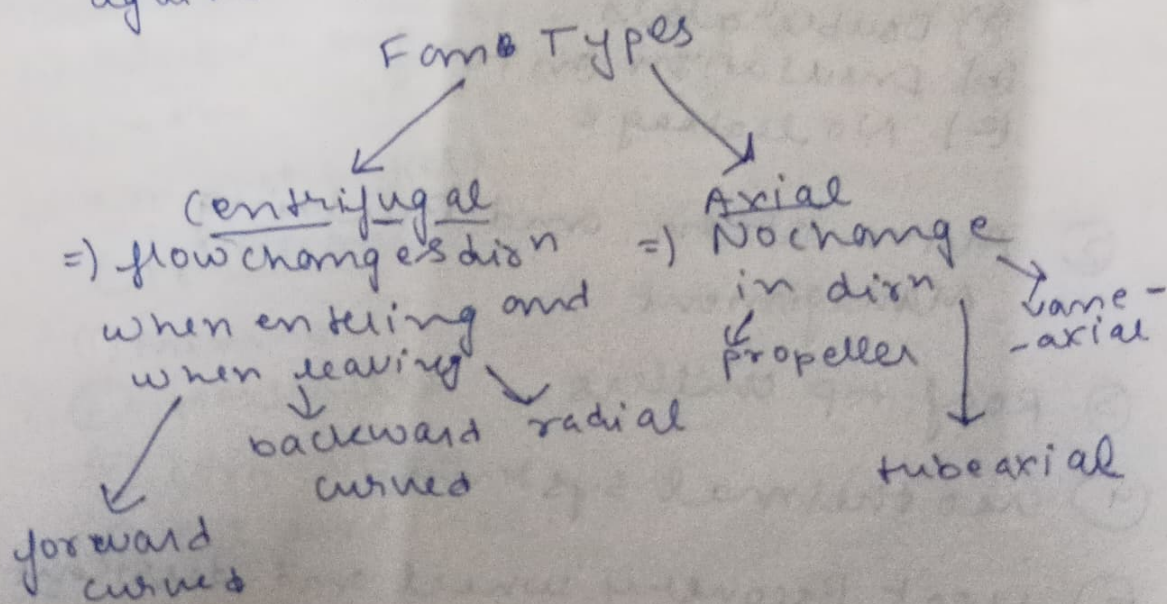 Fan Types
Centrifugal
=) flow changes dirn
when entering and
when leaving
forward
curved
backward
curved
radial
Axial
=) No change
in dirn
propeller
tubeaxial
Vane-
-axial